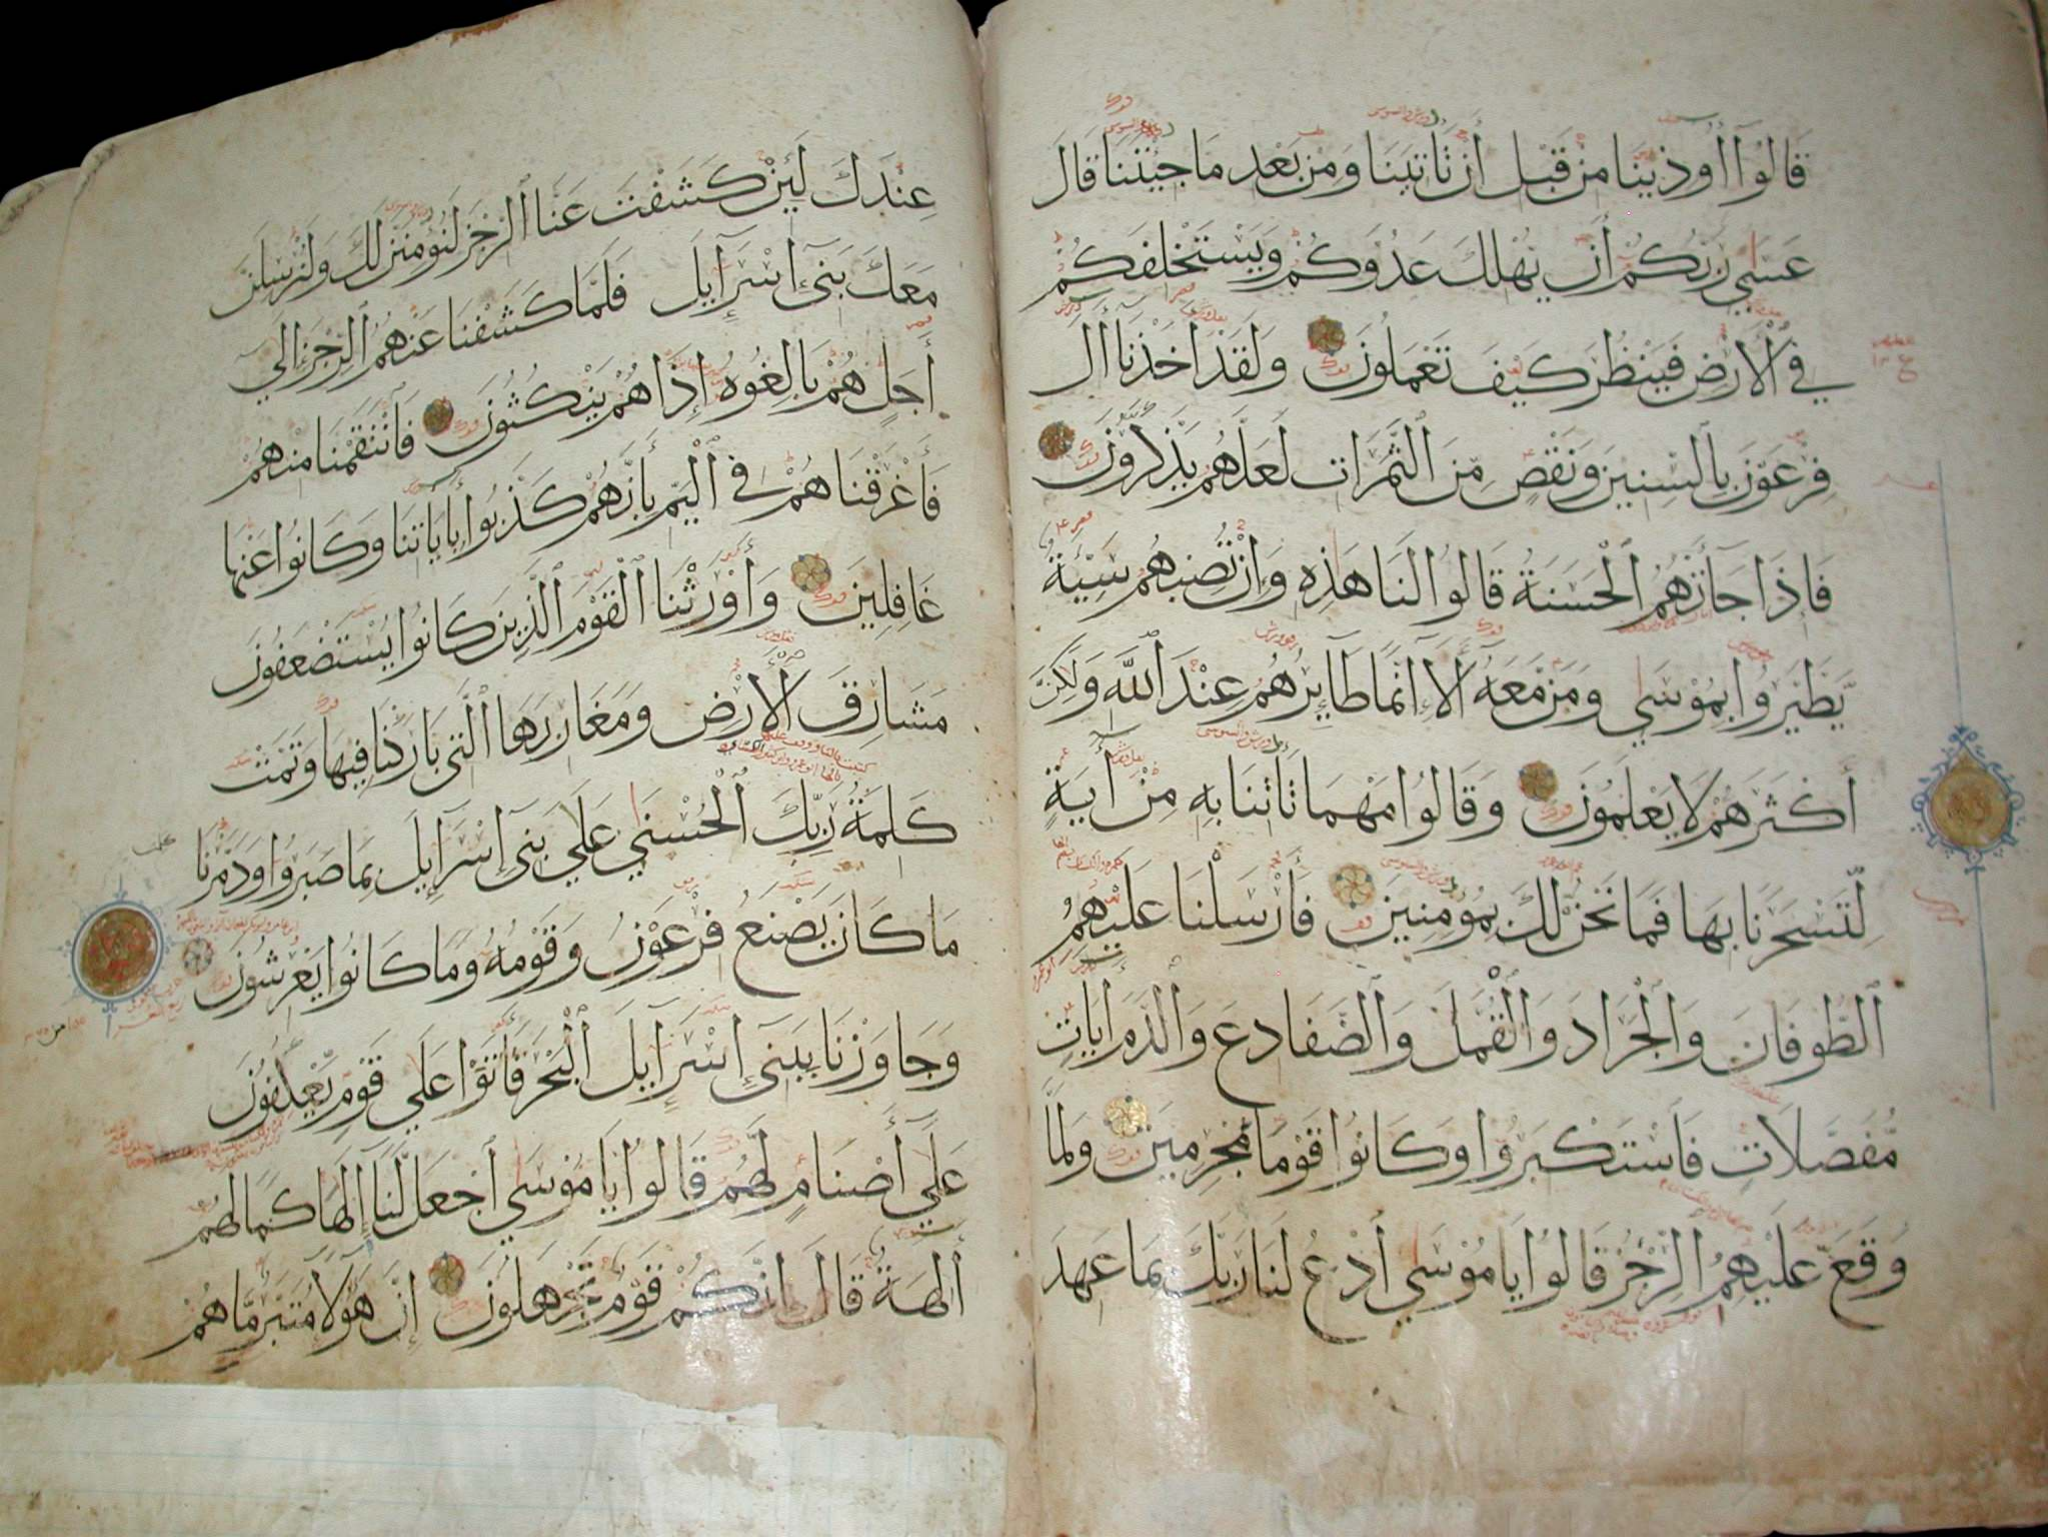 قَالُوٓا أُوذِينَا مِنْ قَبْلِ أَنْ تَأْتِيَنَا وَمِنْ بَعْدِ مَا جِئْتَنَا قَالَ
عَسَى رَبُّكُمْ أَنْ يُهْلِكَ عَدُوَّكُمْ وَيَسْتَخْلِفَكُمْ
فِي ٱلْأَرْضِ فَيَنْظُرَ كَيْفَ تَعْمَلُونَ وَلَقَدْ أَخَذْنَا آلَ
فِرْعَوْنَ بِالسِّنِينَ وَنَقْصٍ مِنَ ٱلثَّمَرَاتِ لَعَلَّهُمْ يَذَّكَّرُونَ
فَإِذَا جَآءَتْهُمُ ٱلْحَسَنَةُ قَالُوا لَنَا هَذِهِ وَإِنْ تُصِبْهُمْ سَيِّئَةٌ
يَطَّيَّرُوا بِمُوسَى وَمَنْ مَعَهُ أَلَآ إِنَّمَا طَآئِرُهُمْ عِنْدَ ٱللَّهِ وَلَكِنَّ
أَكْثَرَهُمْ لَا يَعْلَمُونَ وَقَالُوا مَهْمَا تَأْتِنَا بِهِ مِنْ آيَةٍ
لِتَسْحَرَنَا بِهَا فَمَا نَحْنُ لَكَ بِمُؤْمِنِينَ فَأَرْسَلْنَا عَلَيْهِمُ
ٱلطُّوفَانَ وَٱلْجَرَادَ وَٱلْقُمَّلَ وَٱلضَّفَادِعَ وَٱلدَّمَ آيَاتٍ
مُفَصَّلَاتٍ فَٱسْتَكْبَرُوا وَكَانُوا قَوْمًا مُجْرِمِينَ وَلَمَّا
وَقَعَ عَلَيْهِمُ ٱلرِّجْزُ قَالُوا يَا مُوسَى ٱدْعُ لَنَا رَبَّكَ بِمَا عَهِدَ
عِنْدَكَ لَئِنْ كَشَفْتَ عَنَّا ٱلرِّجْزَ لَنُؤْمِنَنَّ لَكَ وَلَنُرْسِلَنَّ
مَعَكَ بَنِيٓ إِسْرَآئِيلَ فَلَمَّا كَشَفْنَا عَنْهُمُ ٱلرِّجْزَ إِلَى
أَجَلٍ هُمْ بَالِغُوهُ إِذَا هُمْ يَنْكُثُونَ فَٱنْتَقَمْنَا مِنْهُمْ
فَأَغْرَقْنَاهُمْ فِي ٱلْيَمِّ بِأَنَّهُمْ كَذَّبُوا بِآيَاتِنَا وَكَانُوا عَنْهَا
غَافِلِينَ وَأَوْرَثْنَا ٱلْقَوْمَ ٱلَّذِينَ كَانُوا يُسْتَضْعَفُونَ
مَشَارِقَ ٱلْأَرْضِ وَمَغَارِبَهَا ٱلَّتِي بَارَكْنَا فِيهَا وَتَمَّتْ
كَلِمَةُ رَبِّكَ ٱلْحُسْنَى عَلَى بَنِيٓ إِسْرَآئِيلَ بِمَا صَبَرُوا وَدَمَّرْنَا
مَا كَانَ يَصْنَعُ فِرْعَوْنُ وَقَوْمُهُ وَمَا كَانُوا يَعْرِشُونَ
وَجَاوَزْنَا بِبَنِيٓ إِسْرَآئِيلَ ٱلْبَحْرَ فَأَتَوْا عَلَى قَوْمٍ يَعْكُفُونَ
عَلَىٓ أَصْنَامٍ لَهُمْ قَالُوا يَا مُوسَى ٱجْعَلْ لَنَآ إِلَهًا كَمَا لَهُمْ
آلِهَةٌ قَالَ إِنَّكُمْ قَوْمٌ تَجْهَلُونَ إِنَّ هَؤُلَآءِ مُتَبَّرٌ مَا هُمْ